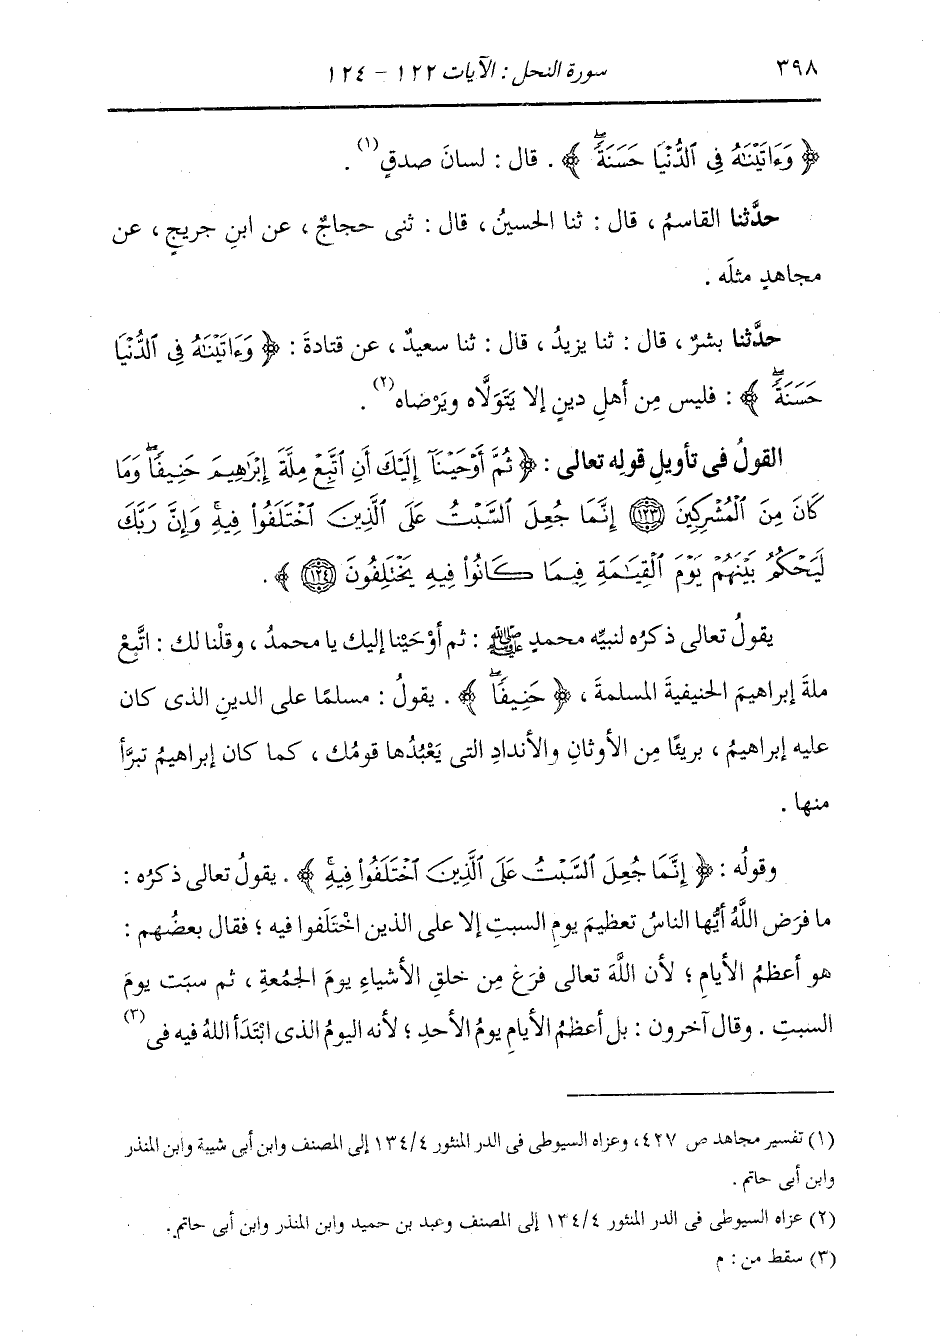 ٣٩٨ سورة النحل : الآيات ١٢٢ - ١٢٤
﴿ وَءَاتَيْنَـٰهُ فِى ٱلدُّنْيَا حَسَنَةًۖ ﴾ . قال : لسانَ صدقٍ(١) .
حدَّثنا القاسمُ ، قال : ثنا الحسينُ ، قال : ثنى حجاجٌ ، عن ابنِ جريجٍ ، عن
مجاهدٍ مثلَه .
حدَّثنا بشرٌ ، قال : ثنا يزيدُ ، قال : ثنا سعيدٌ ، عن قتادةَ : ﴿ وَءَاتَيْنَـٰهُ فِى ٱلدُّنْيَا
حَسَنَةًۖ ﴾ : فليس مِن أهلِ دينٍ إلا يَتَوَلَّاه ويَرْضاه(٢) .
القولُ فى تأويلِ قولِه تعالى : ﴿ ثُمَّ أَوْحَيْنَآ إِلَيْكَ أَنِ ٱتَّبِعْ مِلَّةَ إِبْرَٰهِيمَ حَنِيفًاۖ وَمَا
كَانَ مِنَ ٱلْمُشْرِكِينَ ﴿١٢٣﴾ إِنَّمَا جُعِلَ ٱلسَّبْتُ عَلَى ٱلَّذِينَ ٱخْتَلَفُوا۟ فِيهِۚ وَإِنَّ رَبَّكَ
لَيَحْكُمُ بَيْنَهُمْ يَوْمَ ٱلْقِيَـٰمَةِ فِيمَا كَانُوا۟ فِيهِ يَخْتَلِفُونَ ﴿١٢٤﴾ ﴾ .
يقولُ تعالى ذكرُه لنبيِّه محمدٍ ﷺ : ثم أوْحَيْنا إليك يا محمدُ ، وقلْنا لك : اتَّبِعْ
ملةَ إبراهيمَ الحنيفيةَ المسلمةَ ، ﴿ حَنِيفًاۖ ﴾ . يقولُ : مسلمًا على الدينِ الذى كان
عليه إبراهيمُ ، بريئًا مِن الأوثانِ والأندادِ التى يَعْبُدُها قومُك ، كما كان إبراهيمُ تبرَّأ
منها .
وقولُه : ﴿ إِنَّمَا جُعِلَ ٱلسَّبْتُ عَلَى ٱلَّذِينَ ٱخْتَلَفُوا۟ فِيهِۚ ﴾ . يقولُ تعالى ذكرُه :
ما فرَض اللَّهُ أيُّها الناسُ تعظيمَ يومِ السبتِ إلا على الذين اخْتَلَفوا فيه ؛ فقال بعضُهم :
هو أعظمُ الأيامِ ؛ لأن اللَّهَ تعالى فرَغ مِن خلقِ الأشياءِ يومَ الجمُعةِ ، ثم سبَت يومَ
السبتِ . وقال آخرون : بل أعظمُ الأيامِ يومُ الأحدِ ؛ لأنه اليومُ الذى ابْتَدَأ اللهُ فيه فى(٣)
(١) تفسير مجاهد ص ٤٢٧، وعزاه السيوطى فى الدر المنثور ١٣٤/٤ إلى المصنف وابن أبى شيبة وابن المنذر
وابن أبى حاتم .
(٢) عزاه السيوطى فى الدر المنثور ١٣٤/٤ إلى المصنف وعبد بن حميد وابن المنذر وابن أبى حاتم .
(٣) سقط من : م